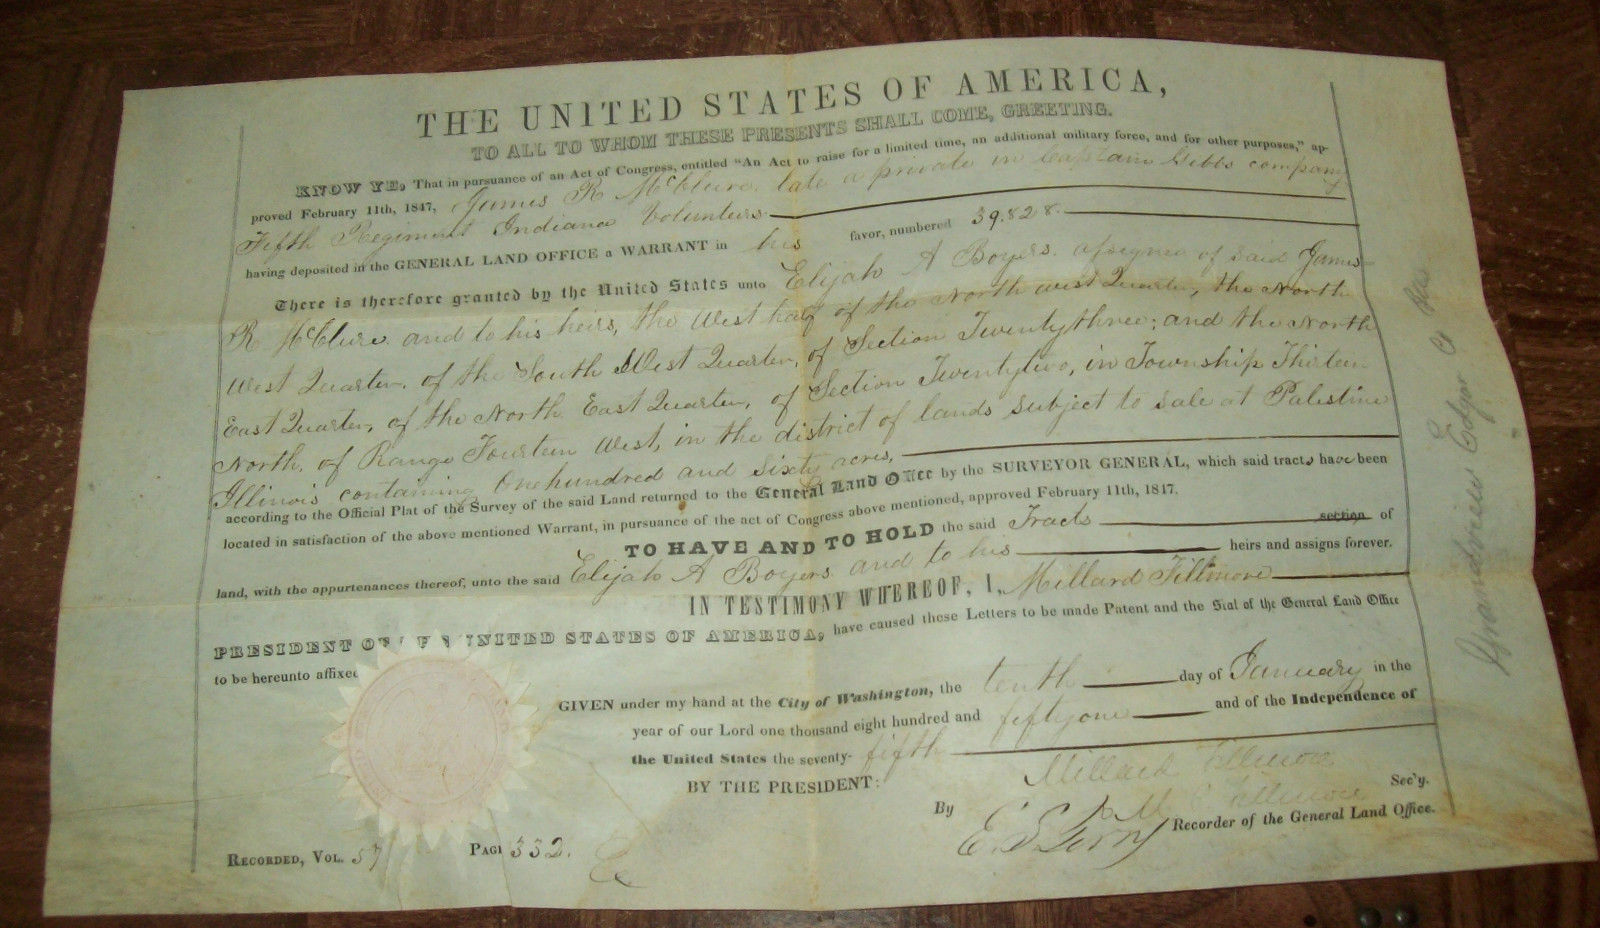 THE UNITED STATES OF AMERICA,
TO ALL TO WHOM THESE PRESENTS SHALL COME, GREETING.
KNOW YE, That in pursuance of an Act of Congress, entitled "An Act to raise for a limited time, an additional military force, and for other purposes," ap-
proved February 11th, 1847, James R McClure late a private in Captain Gibbs company
Fifth Regiment Indiana Volunteers
having deposited in the GENERAL LAND OFFICE a WARRANT in his favor, numbered 39.828.
There is therefore granted by the United States unto Elijah A Boyers assignee of said James
R McClure and to his heirs, the West half of the North west Quarter, the North
West Quarter, of the South West Quarter, of Section Twentythree; and the North
East Quarter, of the North East Quarter, of Section Twentytwo, in Township Thirteen
North, of Range Fourteen West, in the district of lands subject to sale at Palestine
Illinois containing Onehundred and sixty acres,
according to the Official Plat of the Survey of the said Land returned to the General Land Office by the SURVEYOR GENERAL, which said tracts have been
located in satisfaction of the above mentioned Warrant, in pursuance of the act of Congress above mentioned, approved February 11th, 1847.
TO HAVE AND TO HOLD the said Tracts section of
land, with the appurtenances thereof, unto the said Elijah A Boyers and to his heirs and assigns forever.
IN TESTIMONY WHEREOF, I, Millard Fillmore
PRESIDENT OF THE UNITED STATES OF AMERICA, have caused these Letters to be made Patent and the Seal of the General Land Office
to be hereunto affixed
GIVEN under my hand at the City of Washington, the tenth day of January in the
year of our Lord one thousand eight hundred and fiftyone and of the Independence of
the United States the seventy-fifth
BY THE PRESIDENT: Millard Fillmore
By M P Fillmore Sec'y.
E. S. Terry Recorder of the General Land Office.
RECORDED, VOL. 57 PAGE 332.
Edgar Co Ills